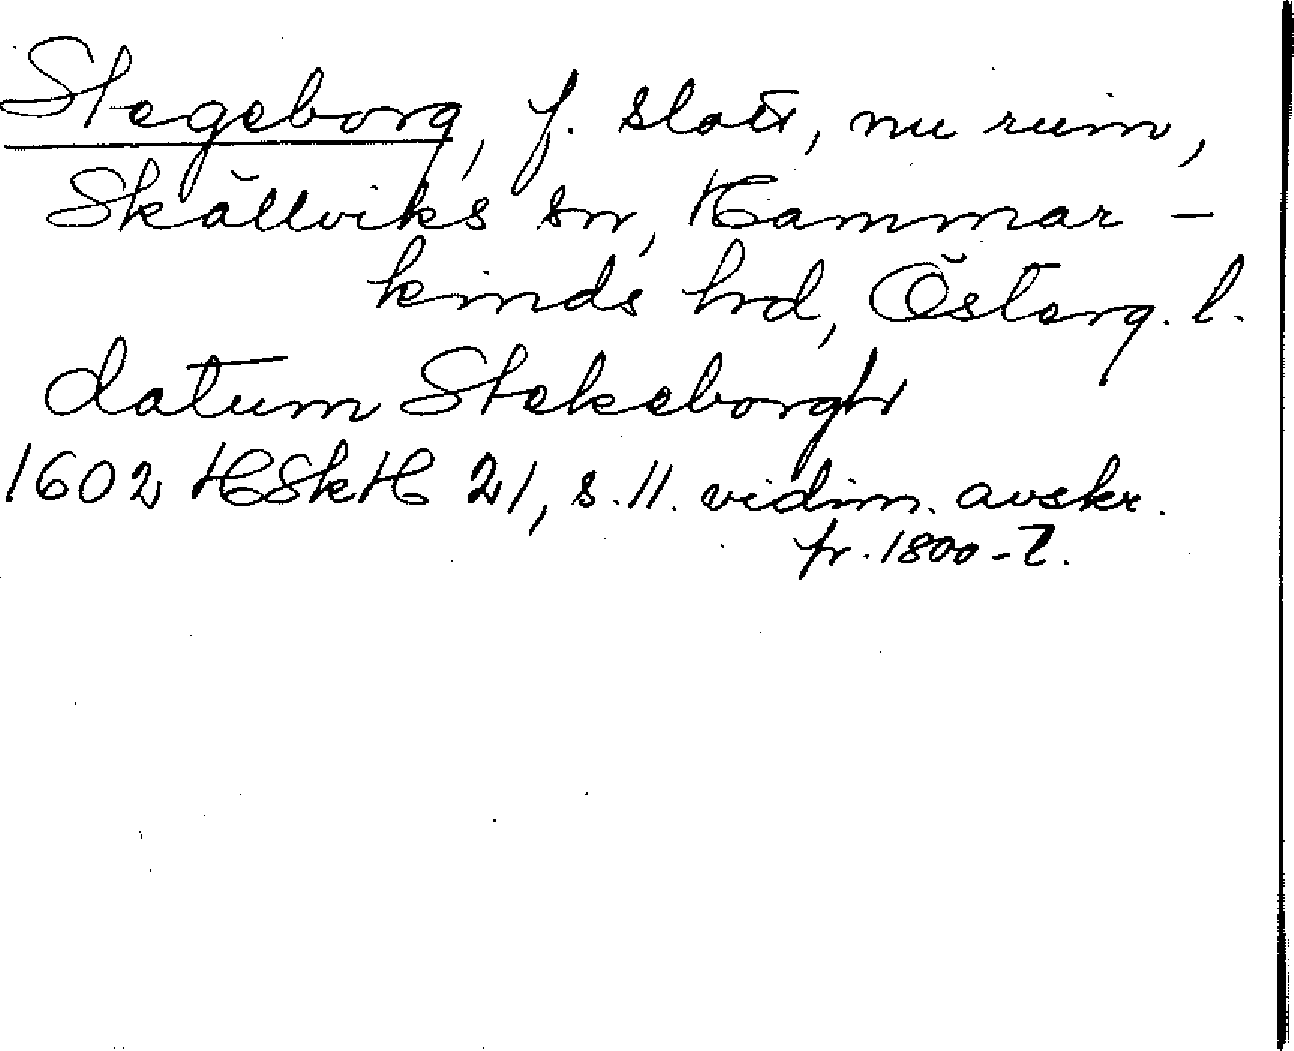 Stegeborg, f. slott, nu ruin,
Skällviks sn, Hammar-
kinds hrd, Österg. l.
datum Stekeborgh
1602 HSkH 21, s. 11. vidim. avskr.
fr. 1800-t.